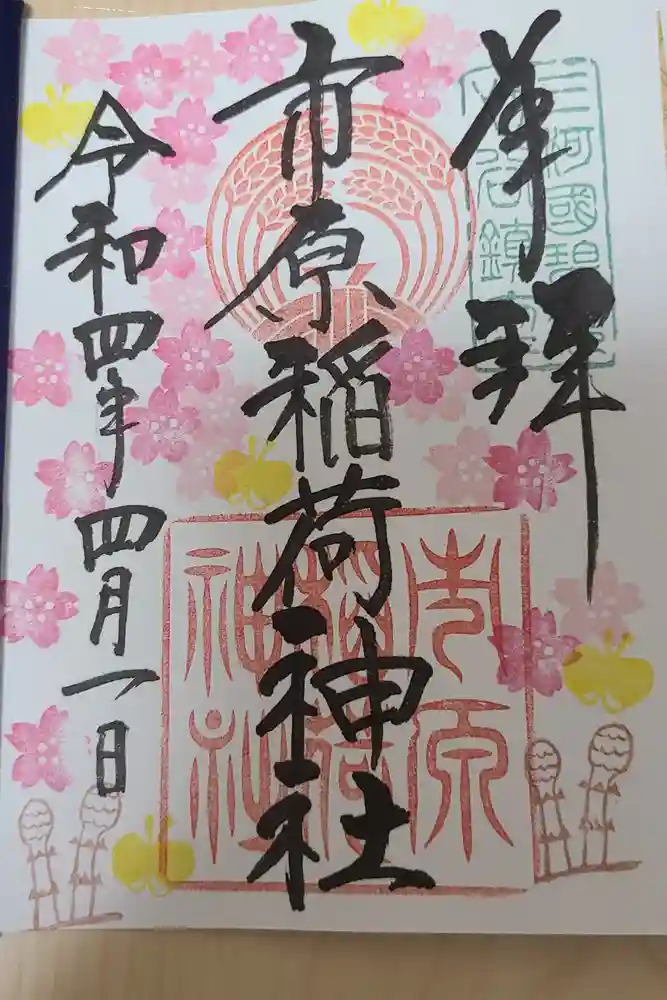 奉拝
三河國碧
市原稲荷神社
市原
稲荷
神社
令和四年四月一日